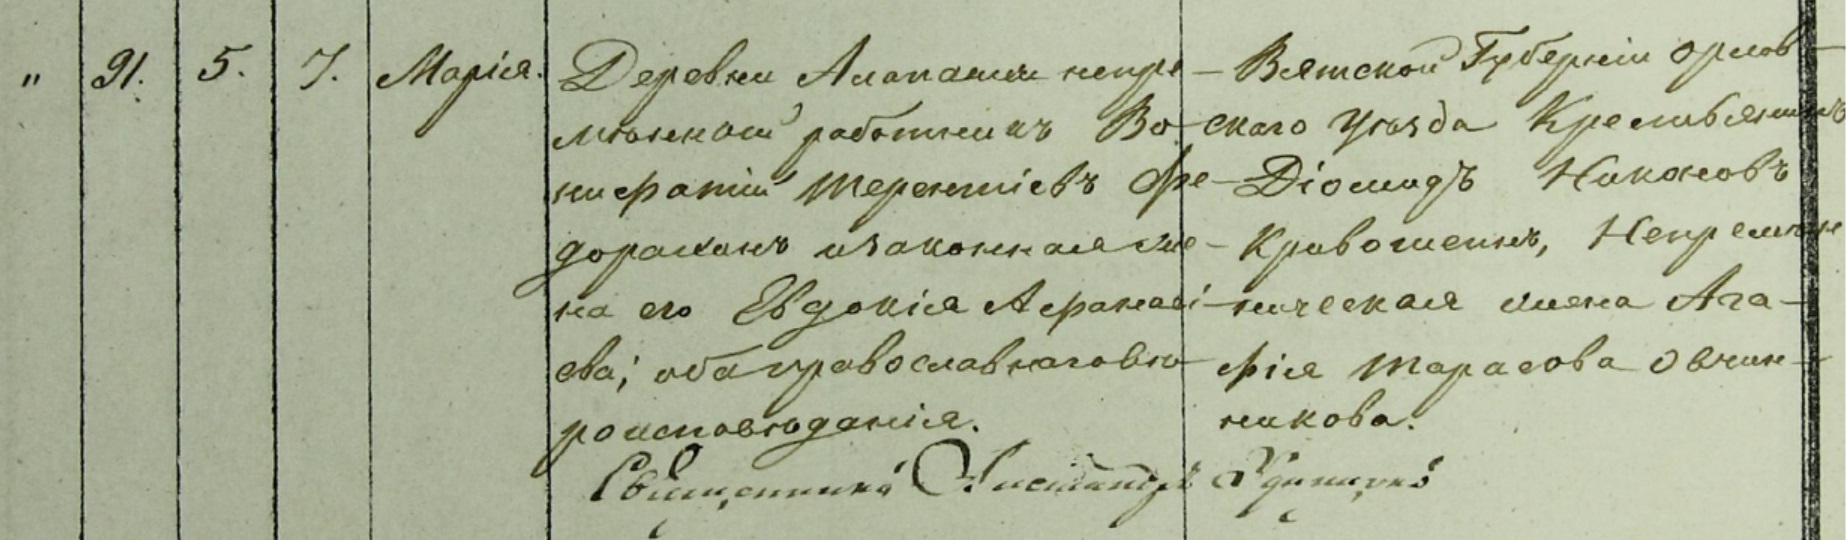 " 91. 5. 7. Марія. Деревни Алапаихи непре- Вятской Губерніи Орлов-
мѣнной работникъ Во- скаго Уѣзда Крестьянинъ
нифатій Терентіевъ Фе- Діомидъ Никоновъ
дорахинъ и законная же- Кривошеинъ, Непремѣн
на его Евдокія Афанасі- ническая жена Ага-
ева; оба православнаго вѣ- фія Тарасова Овчин-
роисповѣданія. никова.
Священникъ Александръ Удинцевъ